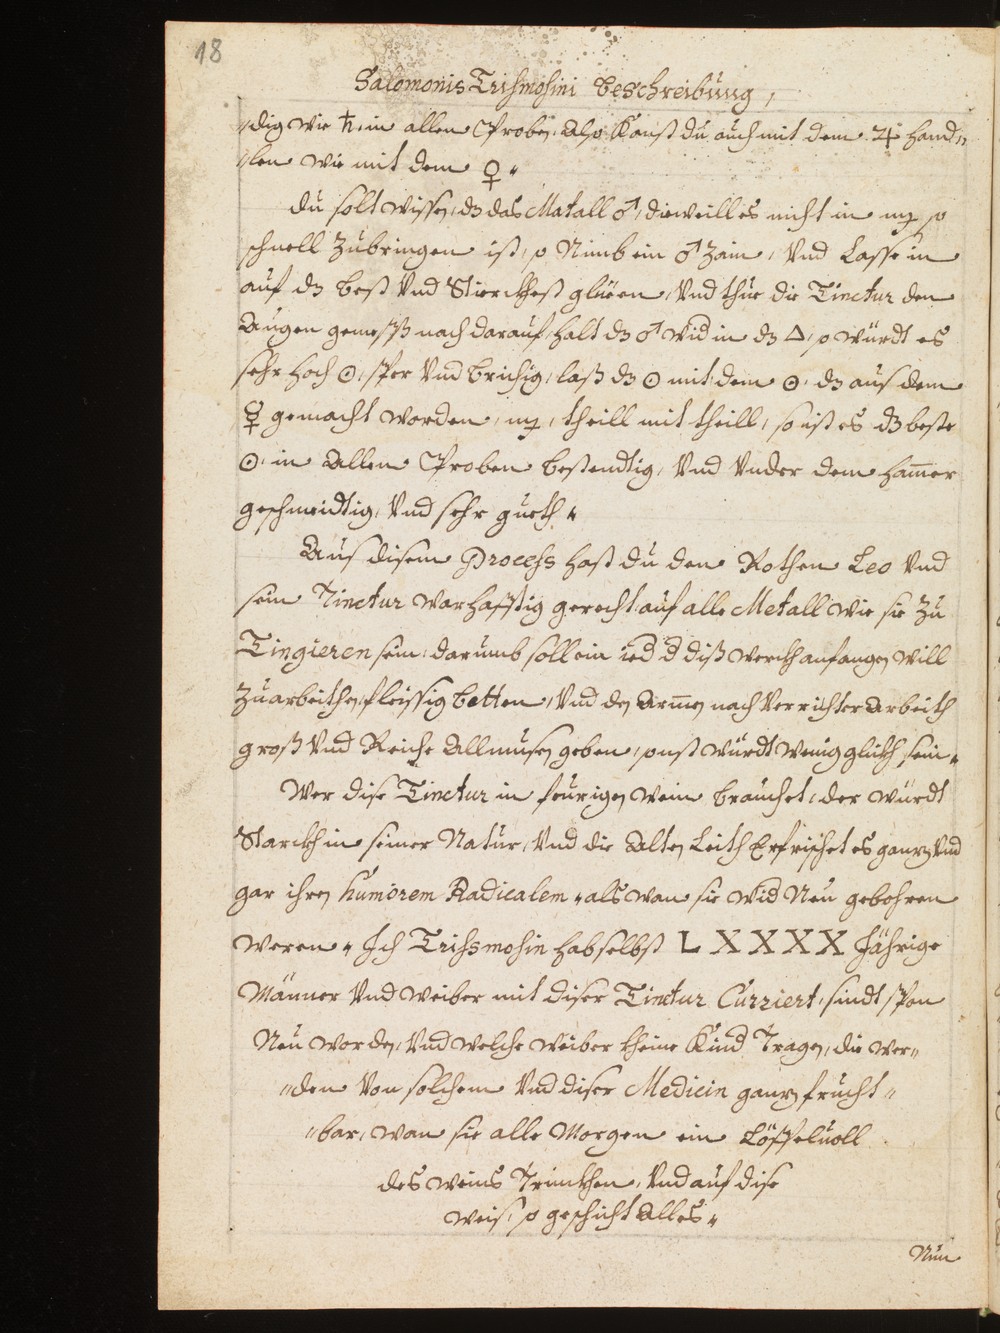 18
Salomonis Trismosini beschreibung,
„dig wie ♄, in allen Proben, Also Kanst du auch mit dem ♃ hand„
„len wie mit dem ♀„
Du solt wissen, dz das Metall ♂, dieweill es nicht in so
schnell Zubringen ist, so Nimb ein ♂ Zain, Vnd Lasse in
auf dz best Vnd Sterckhest glüen, Vnd thue die Tinctur den
Augen gemeß nach darauf, halt dz ♂ wid in dz △, so würdt es
sehr hoch ☉, sper Vnd brichig, laß dz ☉ mit dem ☉, dz aus dem
♀ gemacht worden, theill mit theill, so ist es dz beste
☉, in Allen Proben bestendtig, Vnd Vnder dem ham̄er
geschmeidtig, Vnd sehr gueth„
Aus disem Process hast du den Rothen Leo Vnd
sein Tinctur warhafftig gerecht auf alle Metall wie sie Zu
Tingieren sein, darumb soll ein ied d diß werckh anfangen will
Zuarbeithen, fleissig betten, Vnd den Arm̄en nach Verrichter Arbeith
groß Vnd Reiche Allmusen geben, sonst würdt wenig glückh sein„
Wer dise Tinctur in feurigen wein brauchet, der würdt
Starckh in seiner Natur, Vnd die Alten Leith Erfrischet es ganz Vnd
gar ihren humorem Radicalem, als wan sie wid Neu gebohren
weren„ Ich Trissmosin hab selbst LXXXX Jährige
Männer Vnd weiber mit diser Tinctur Curriert, sindt schon
Neu worden, Vnd welche weiber kheine Kind Tragen, die wer„
„den Von solchem Vnd diser Medicin ganz frucht„
„bar, wan sie alle Morgen ein Löffeluoll
des weins Trinckhen, Vnd auf dise
weis, so geschicht Alles„
Nun